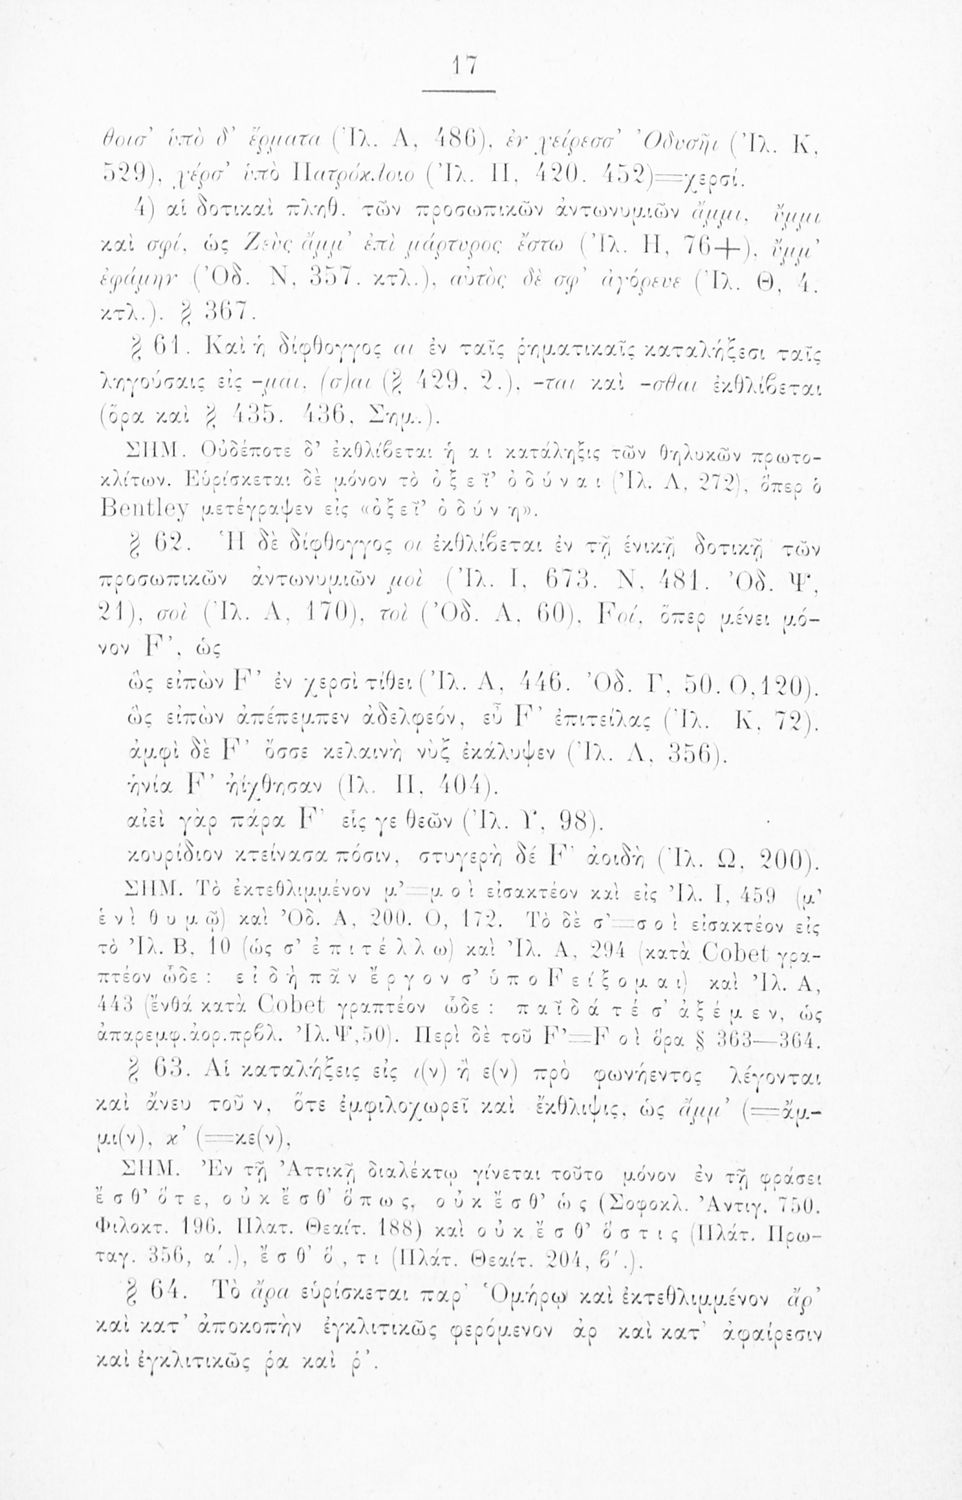 17
θοισ’ ὑπὸ δ’ ἕρματα (Ἰλ. Α, 486), ἐν χείρεσσ’ Ὀδυσῆι (Ἰλ. Κ,
529), χέρσ’ ὑπὸ Πατρόκλοιο (Ἰλ. Π, 420. 452)=χερσί.
4) αἱ δοτικαὶ πληθ. τῶν προσωπικῶν ἀντωνυμιῶν ἄμμι, ὔμμι
καὶ σφί, ὡς Ζεὺς ἄμμ’ ἐπὶ μάρτυρος ἔστω (Ἰλ. Η, 76+), ὔμμ’
ἐφάμην (Ὀδ. Ν, 357. κτλ.), αὐτὸς δὲ σφ’ ἀγόρευε (Ἰλ. Θ, 4.
κτλ.). § 367.
§ 61. Καὶ ἡ δίφθογγος αι ἐν ταῖς ῥηματικαῖς καταλήξεσι ταῖς
ληγούσαις εἰς -μαι, (σ)αι (§ 429, 2.), -ται καὶ -σθαι ἐκθλίβεται
(ὅρα καὶ § 435. 436, Σημ.).
ΣΗΜ. Οὐδέποτε δ’ ἐκθλίβεται ἡ α ι κατάληξις τῶν θηλυκῶν πρωτο-
κλίτων. Εὑρίσκεται δὲ μόνον τὸ ὀ ξ ε ῖ’ ὀ δ ύ ν α ι (Ἰλ. Λ, 272), ὅπερ ὁ
Bentley μετέγραψεν εἰς «ὀ ξ ε ῖ’ ὀ δ ύ ν η».
§ 62. Ἡ δὲ δίφθογγος οι ἐκθλίβεται ἐν τῇ ἑνικῇ δοτικῇ τῶν
προσωπικῶν ἀντωνυμιῶν μοὶ (Ἰλ. Ι, 673. Ν, 481. Ὀδ. Ψ,
21), σοὶ (Ἰλ. Α, 170), τοὶ (Ὀδ. Α, 60), Fοί, ὅπερ μένει μό-
νον F’, ὡς
ὣς εἰπὼν F’ ἐν χερσὶ τίθει (Ἰλ. Α, 446. Ὀδ. Γ, 50. Ο,120).
ὣς εἰπὼν ἀπέπεμπεν ἀδελφεόν, εὖ F’ ἐπιτείλας (Ἰλ. Κ, 72).
ἀμφὶ δὲ F’ ὄσσε κελαινὴ νὺξ ἐκάλυψεν (Ἰλ. Λ, 356).
ἡνία F’ ἠίχθησαν (Ἰλ. Π, 404).
αἰεὶ γὰρ πάρα F’ εἷς γε θεῶν (Ἰλ. Υ, 98).
κουρίδιον κτείνασα πόσιν, στυγερὴ δέ F’ ἀοιδὴ (Ἰλ. Ω, 200).
ΣΗΜ. Τὸ ἐκτεθλιμμένον μ’=μ ο ὶ εἰσακτέον καὶ εἰς Ἰλ. Ι, 459 (μ’
ἐ ν ὶ θ υ μ ῷ) καὶ Ὀδ. Α, 200. Ο, 172. Τὸ δὲ σ’=σ ο ὶ εἰσακτέον εἰς
τὸ Ἰλ. Β, 10 (ὡς σ’ ἐ π ι τ έ λ λ ω) καὶ Ἰλ. Α, 294 (κατὰ Cobet γρα-
πτέον ὧδε : ε ἰ δ ὴ π ᾶ ν ἔ ρ γ ο ν σ’ ὑ π ο F ε ί ξ ο μ α ι) καὶ Ἰλ. Α,
443 (ἔνθα κατὰ Cobet γραπτέον ὧδε : π α ῖ δ ά τ έ σ’ ἀ ξ έ μ ε ν, ὡς
ἀπαρεμφ.ἀορ.πρβλ. Ἰλ.Ψ,50). Περὶ δὲ τοῦ F’=F ο ῖ ὅρα § 363—364.
§ 63. Αἱ καταλήξεις εἰς ι(ν) ἢ ε(ν) πρὸ φωνήεντος λέγονται
καὶ ἄνευ τοῦ ν, ὅτε ἐμφιλοχωρεῖ καὶ ἔκθλιψις, ὡς ἄμμ’ (=ἄμ-
μι(ν), κ’ (=κε(ν),
ΣΗΜ. Ἐν τῇ Ἀττικῇ διαλέκτῳ γίνεται τοῦτο μόνον ἐν τῇ φράσει
ἔ σ θ’ ὅ τ ε, ο ὐ κ ἔ σ θ’ ὅ π ω ς, ο ὐ κ ἔ σ θ’ ὡ ς (Σοφοκλ. Ἀντιγ. 750.
Φιλοκτ. 196. Πλατ. Θεαίτ. 188) καὶ ο ὐ κ ἔ σ θ’ ὅ σ τ ι ς (Πλάτ. Πρω-
ταγ. 356, α΄.), ἔ σ θ’ ὅ , τ ι (Πλάτ. Θεαίτ. 204, β΄.).
§ 64. Τὸ ἄρα εὑρίσκεται παρ’ Ὁμήρῳ καὶ ἐκτεθλιμμένον ἄρ’
καὶ κατ’ ἀποκοπὴν ἐγκλιτικῶς φερόμενον ἀρ καὶ κατ’ ἀφαίρεσιν
καὶ ἐγκλιτικῶς ῥα καὶ ῥ’.